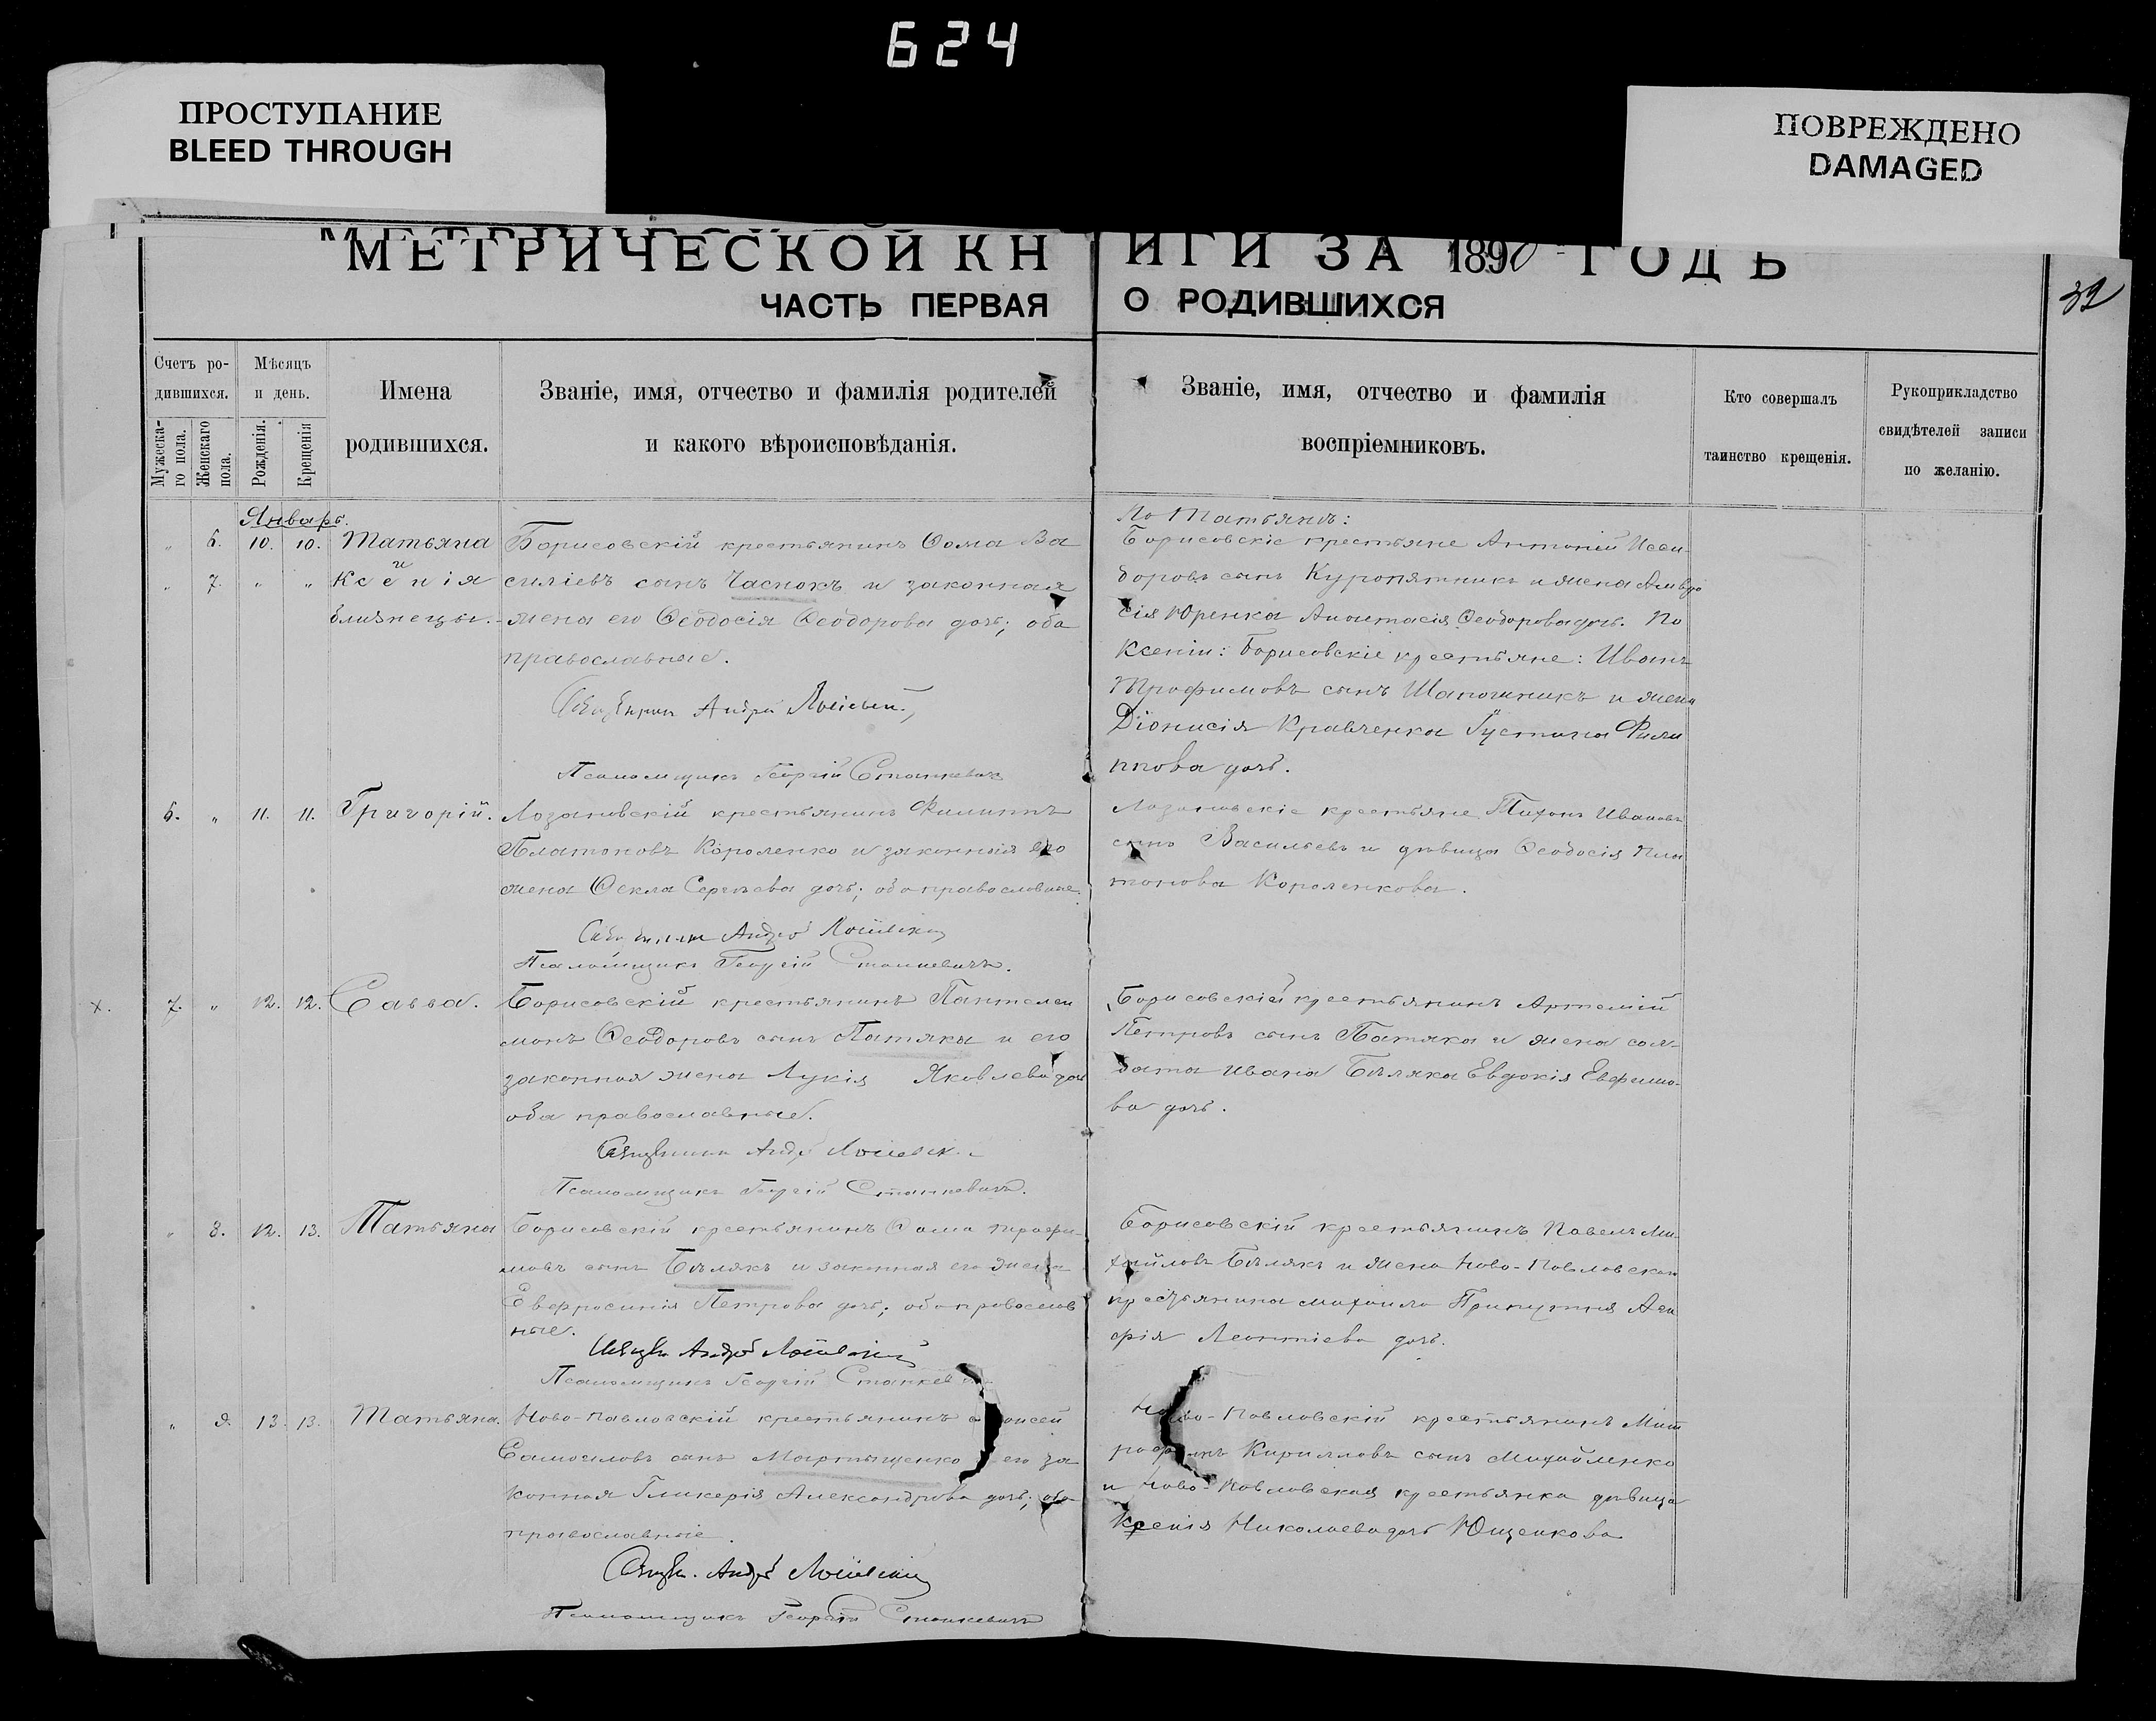 624
ПРОСТУПАНИЕ
BLEED THROUGH
ПОВРЕЖДЕНО
DAMAGED
МЕТРИЧЕСКОЙ КНИГИ ЗА 1890 ГОДЪ
ЧАСТЬ ПЕРВАЯ О РОДИВШИХСЯ
32
Счетъ ро-
дившихся.
Мужеска-
го пола.
Женскаго
пола.
Мѣсяцъ
и день.
Рожденія.
Крещенія
Имена
родившихся.
Званіе, имя, отчество и фамилія родителей
и какого вѣроисповѣданія.
Званіе, имя, отчество и фамилія
воспріемниковъ.
Кто совершалъ
таинство крещенія.
Рукоприкладство
свидѣтелей записи
по желанію.
Январь.
" 6. 10. 10. Татьяна
" 7. " " Ксенія
и
близнецы.
Борисовскій крестьянинъ Ѳома Ва
силіевъ сынъ Часнокъ и законная
жена его Ѳеодосія Ѳеодорова дочь; оба
православные.
Андрей
Псаломщикъ Георгій Станкевичъ
По Татьянѣ:
Борисовскіе крестьяне Антоній Иси
доровъ сынъ Куропятникъ и жена Амвро
сія Юренка Анастасія Ѳеодорова дочь. По
Ксеніи: Борисовскіе крестьяне: Иванъ
Трофимовъ сынъ Шапошникъ и жена
Діонисія Кравченка Іустина Фили
ппова дочь.
6. " 11. 11. Григорій.
Лозановскій крестьянинъ Филиппъ
Платоновъ Короленко и законная его
жена Ѳекла Сергѣева дочь; оба православные.
Андрей
Псаломщикъ Георгій Станкевичъ.
Лозановскіе крестьяне Тихонъ Ивановъ
сынъ Васильевъ и дѣвица Ѳеодосія Пла
тонова Короленкова.
х. 7. " 12. 12. Савва.
Борисовскій крестьянинъ Пантелеи
монъ Ѳеодоровъ сынъ Патяка и его
законная жена Лукія Яковлева дочь
оба православные.
Андрей
Псаломщикъ Георгій Станкевичъ.
Борисовскій крестьянинъ Артемій
Петровъ сынъ Патяка и жена сол-
дата Ивана Бѣляка Евдокія Евфимо-
ва дочь.
" 8. 12. 13. Татьяна
Борисовскій крестьянинъ Ѳома Трофи-
мовъ сынъ Бѣлякъ и законная его жена
Евфросинія Петрова дочь; оба православ
ные.
Андрей
Псаломщикъ Георгій Станкев
Борисовскій крестьянинъ Павелъ Ми
хайловъ Бѣлякъ и жена Ново-Павловскаго
крестьянина Михаила
Леонтіева дочь.
" 9. 13. 13. Татьяна.
Ново-Павловскій крестьянинъ оисей
Самойловъ сынъ Мартыщенко его за
конная Гликерія Александрова дочь; оба
православные.
Андрей
Псаломщикъ Георгій Станкевичъ
Ново-Павловскій крестьянинъ Мит
рофанъ Кирилловъ сынъ Михайленко
и Ново-Павловская крестьянка дѣвица
Ксенія Николаева дочь Ющенкова